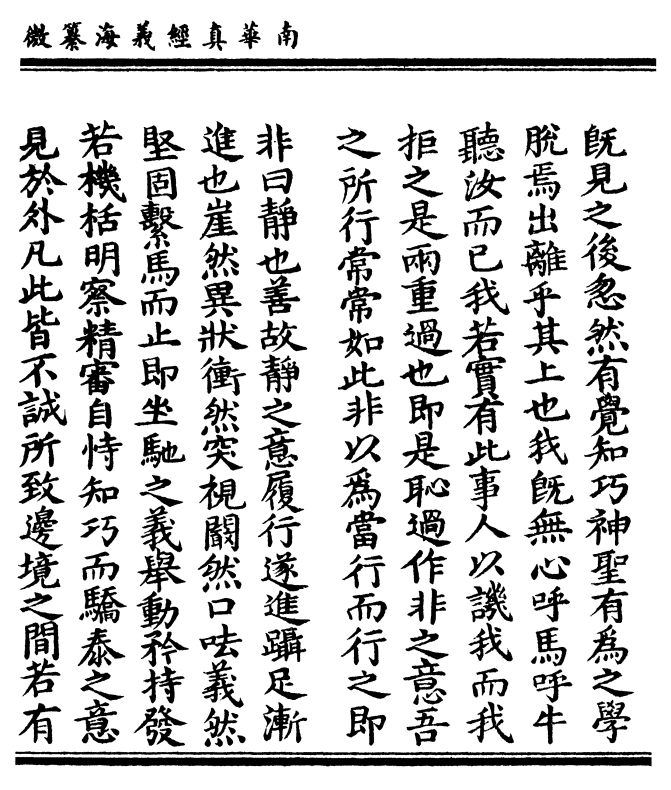 南華真經義海纂微
旣見之後忽然有覺知巧神聖有爲之學
脫焉出離乎其上也我旣無心呼馬呼牛
聽汝而已我若實有此事人以譏我而我
拒之是兩重過也即是恥過作非之意吾
之所行常常如此非以爲當行而行之即
非曰靜也善故靜之意履行遂進躡足漸
進也崖然異狀衝然突視闞然口呿義然
堅固繫馬而止即坐馳之義舉動矜持發
若機栝明察精審自恃知巧而驕泰之意
見於外凡此皆不誠所致邊境之間若有